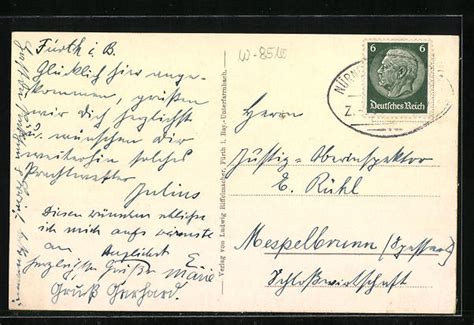 W-8510
Fürth i. B.
Glücklich hier ange-
kommen, grüßen
wir Dich herzlichst
u. wünschen Dir
weiterhin solches
Prachtwetter
Julius
Diesen wünschen schließe
ich mich aufs wärmste
an
herzliche Grüße Marie
Gruß Gerhard.
Verlag von Ludwig Riffelmacher, Fürth i. Bay.-Unterfarrnbach.
6 6
Deutsches Reich
NÜRN
Z.
Herrn
Justiz-Oberinspektor
E. Rühl
Mespelbrunn (Spessart)
Schloßwirtschaft